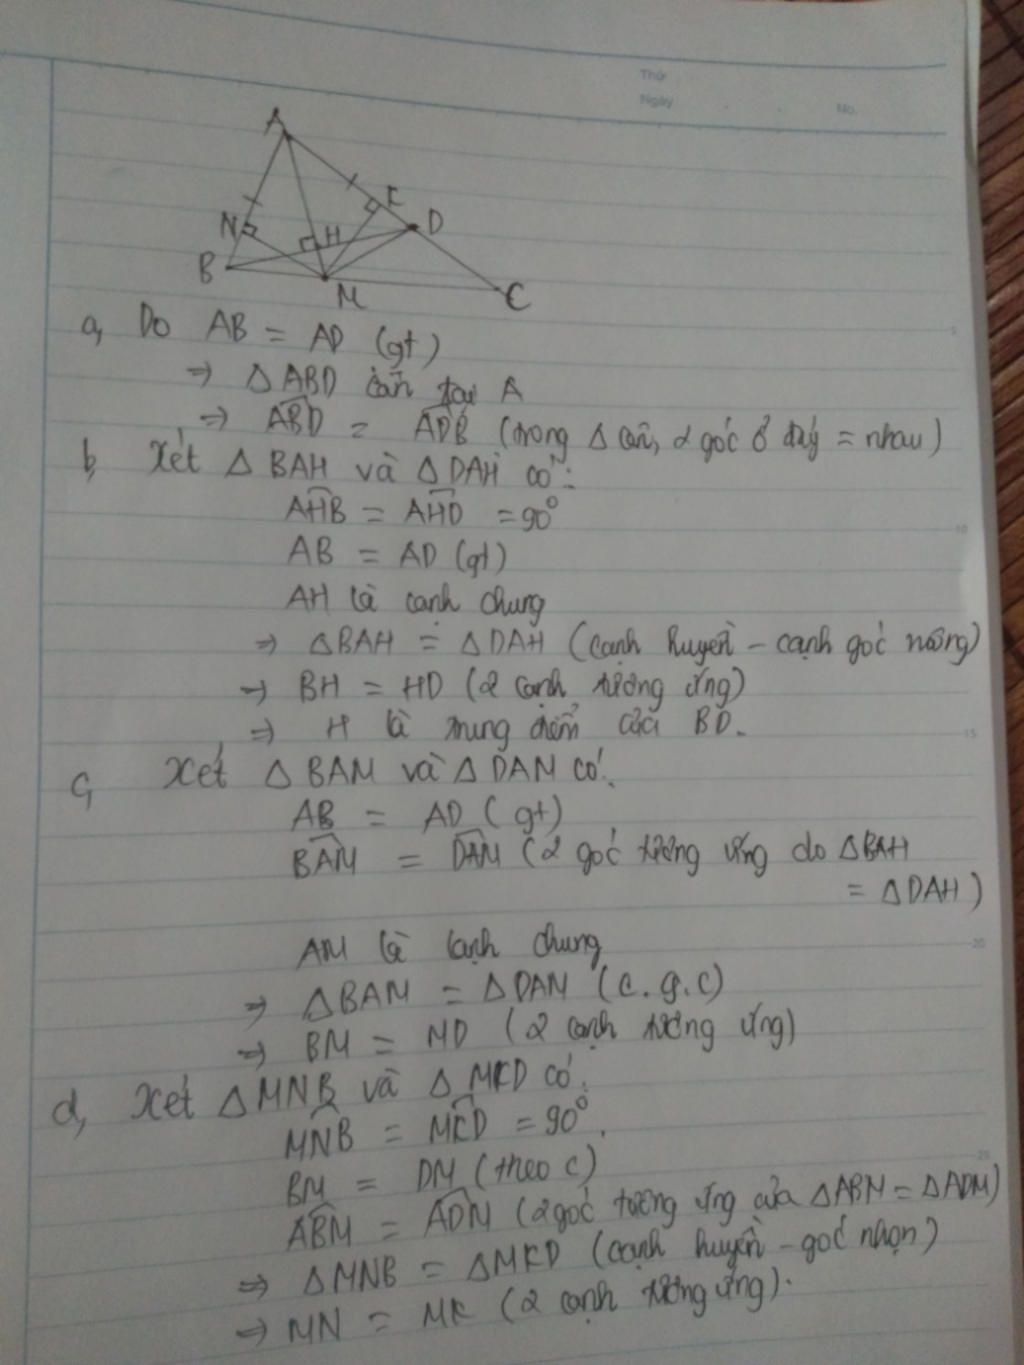 Thứ
Ngày No.
A
K
N H D
B
M C
a, Do AB = AD (gt)
=> Δ ABD cân tại A
=> ABD = ADB (trong Δ cân, 2 góc ở đáy = nhau)
b, Xét Δ BAH và Δ DAH có:
AHB = AHD = 90°
AB = AD (gt)
AH là cạnh chung
=> ΔBAH = ΔDAH (cạnh huyền - cạnh góc vuông)
=> BH = HD (2 cạnh tương ứng)
=> H là trung điểm của BD.
c, Xét Δ BAM và Δ DAM có:
AB = AD (gt)
BAM = DAM (2 góc tương ứng do ΔBAH
= ΔDAH)
AM là cạnh chung
=> ΔBAM = ΔDAM (c.g.c)
=> BM = MD (2 cạnh tương ứng)
d, Xét ΔMNB và ΔMKD có:
MNB = MKD = 90°.
BM = DM (theo c)
ABM = ADM (2 góc tương ứng của ΔABM = ΔADM)
=> ΔMNB = ΔMKD (cạnh huyền - góc nhọn)
=> MN = MK (2 cạnh tương ứng).